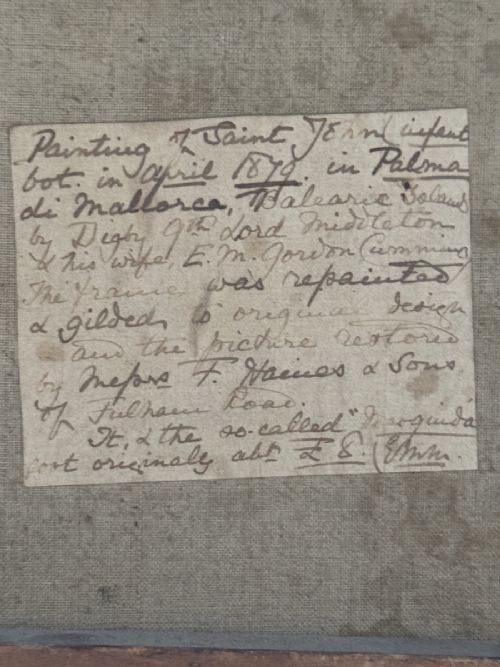 Painting of Saint John (infant
bot. in April 1870 in Palma
di Mallorca, Balearic Island
by Digby 9th Lord Middleton
& his wife, E. M. Gordon Cumming
The frame was repainted
& gilded, to original design
and the picture restored
by Messrs F. Haines & Sons
of Fulham Road.
It, & the so-called "
cost originally abt £ 8. (EMM.